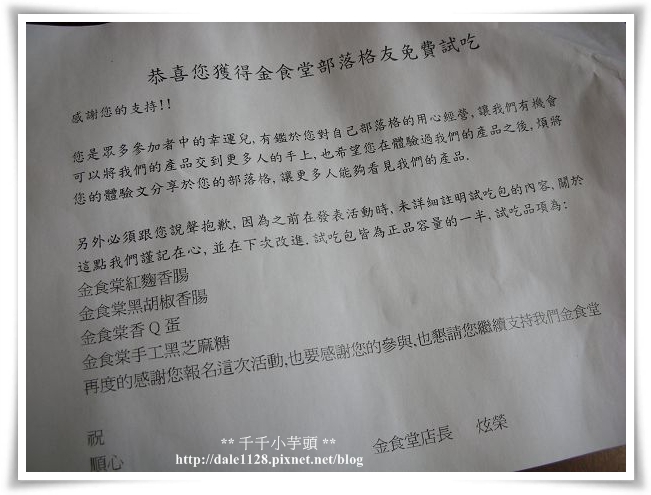 恭喜您獲得金食堂部落格友免費試吃
感謝您的支持!!
您是眾多參加者中的幸運兒,有鑑於您對自己部落格的用心經營,讓我們有機會
可以將我們的產品交到更多人的手上,也希望您在體驗過我們的產品之後,煩將
您的體驗文分享於您的部落格,讓更多人能夠看見我們的產品.
另外必須跟您說聲抱歉,因為之前在發表活動時,未詳細註明試吃包的內容,關於
這點我們謹記在心,並在下次改進.試吃包皆為正品容量的一半,試吃品項為:
金食棠紅麴香腸
金食棠黑胡椒香腸
金食棠香Q蛋
金食棠手工黑芝麻糖
再度的感謝您報名這次活動,也要感謝您的參與,也懇請您繼續支持我們金食堂
祝
順心
金食堂店長 炫榮
** 千千小芋頭 **
http://dale1128.pixnet.net/blog